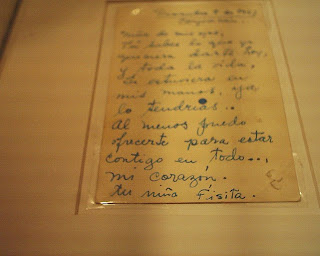 Diciembre 8 de
Niño de mis ojos,
Tú sabes lo que yo
quisiera darte hoy,
y toda la vida.
Si estuviera en
mis manos, ya
lo tendrías..
Al menos puedo
ofrecerte para estar
contigo en todo..,
mi corazón.
tu niña Fisita.